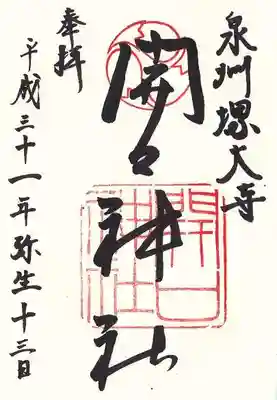 泉州堺大寺
開口神社
開口
神社
奉拝
平成三十一年弥生十三日